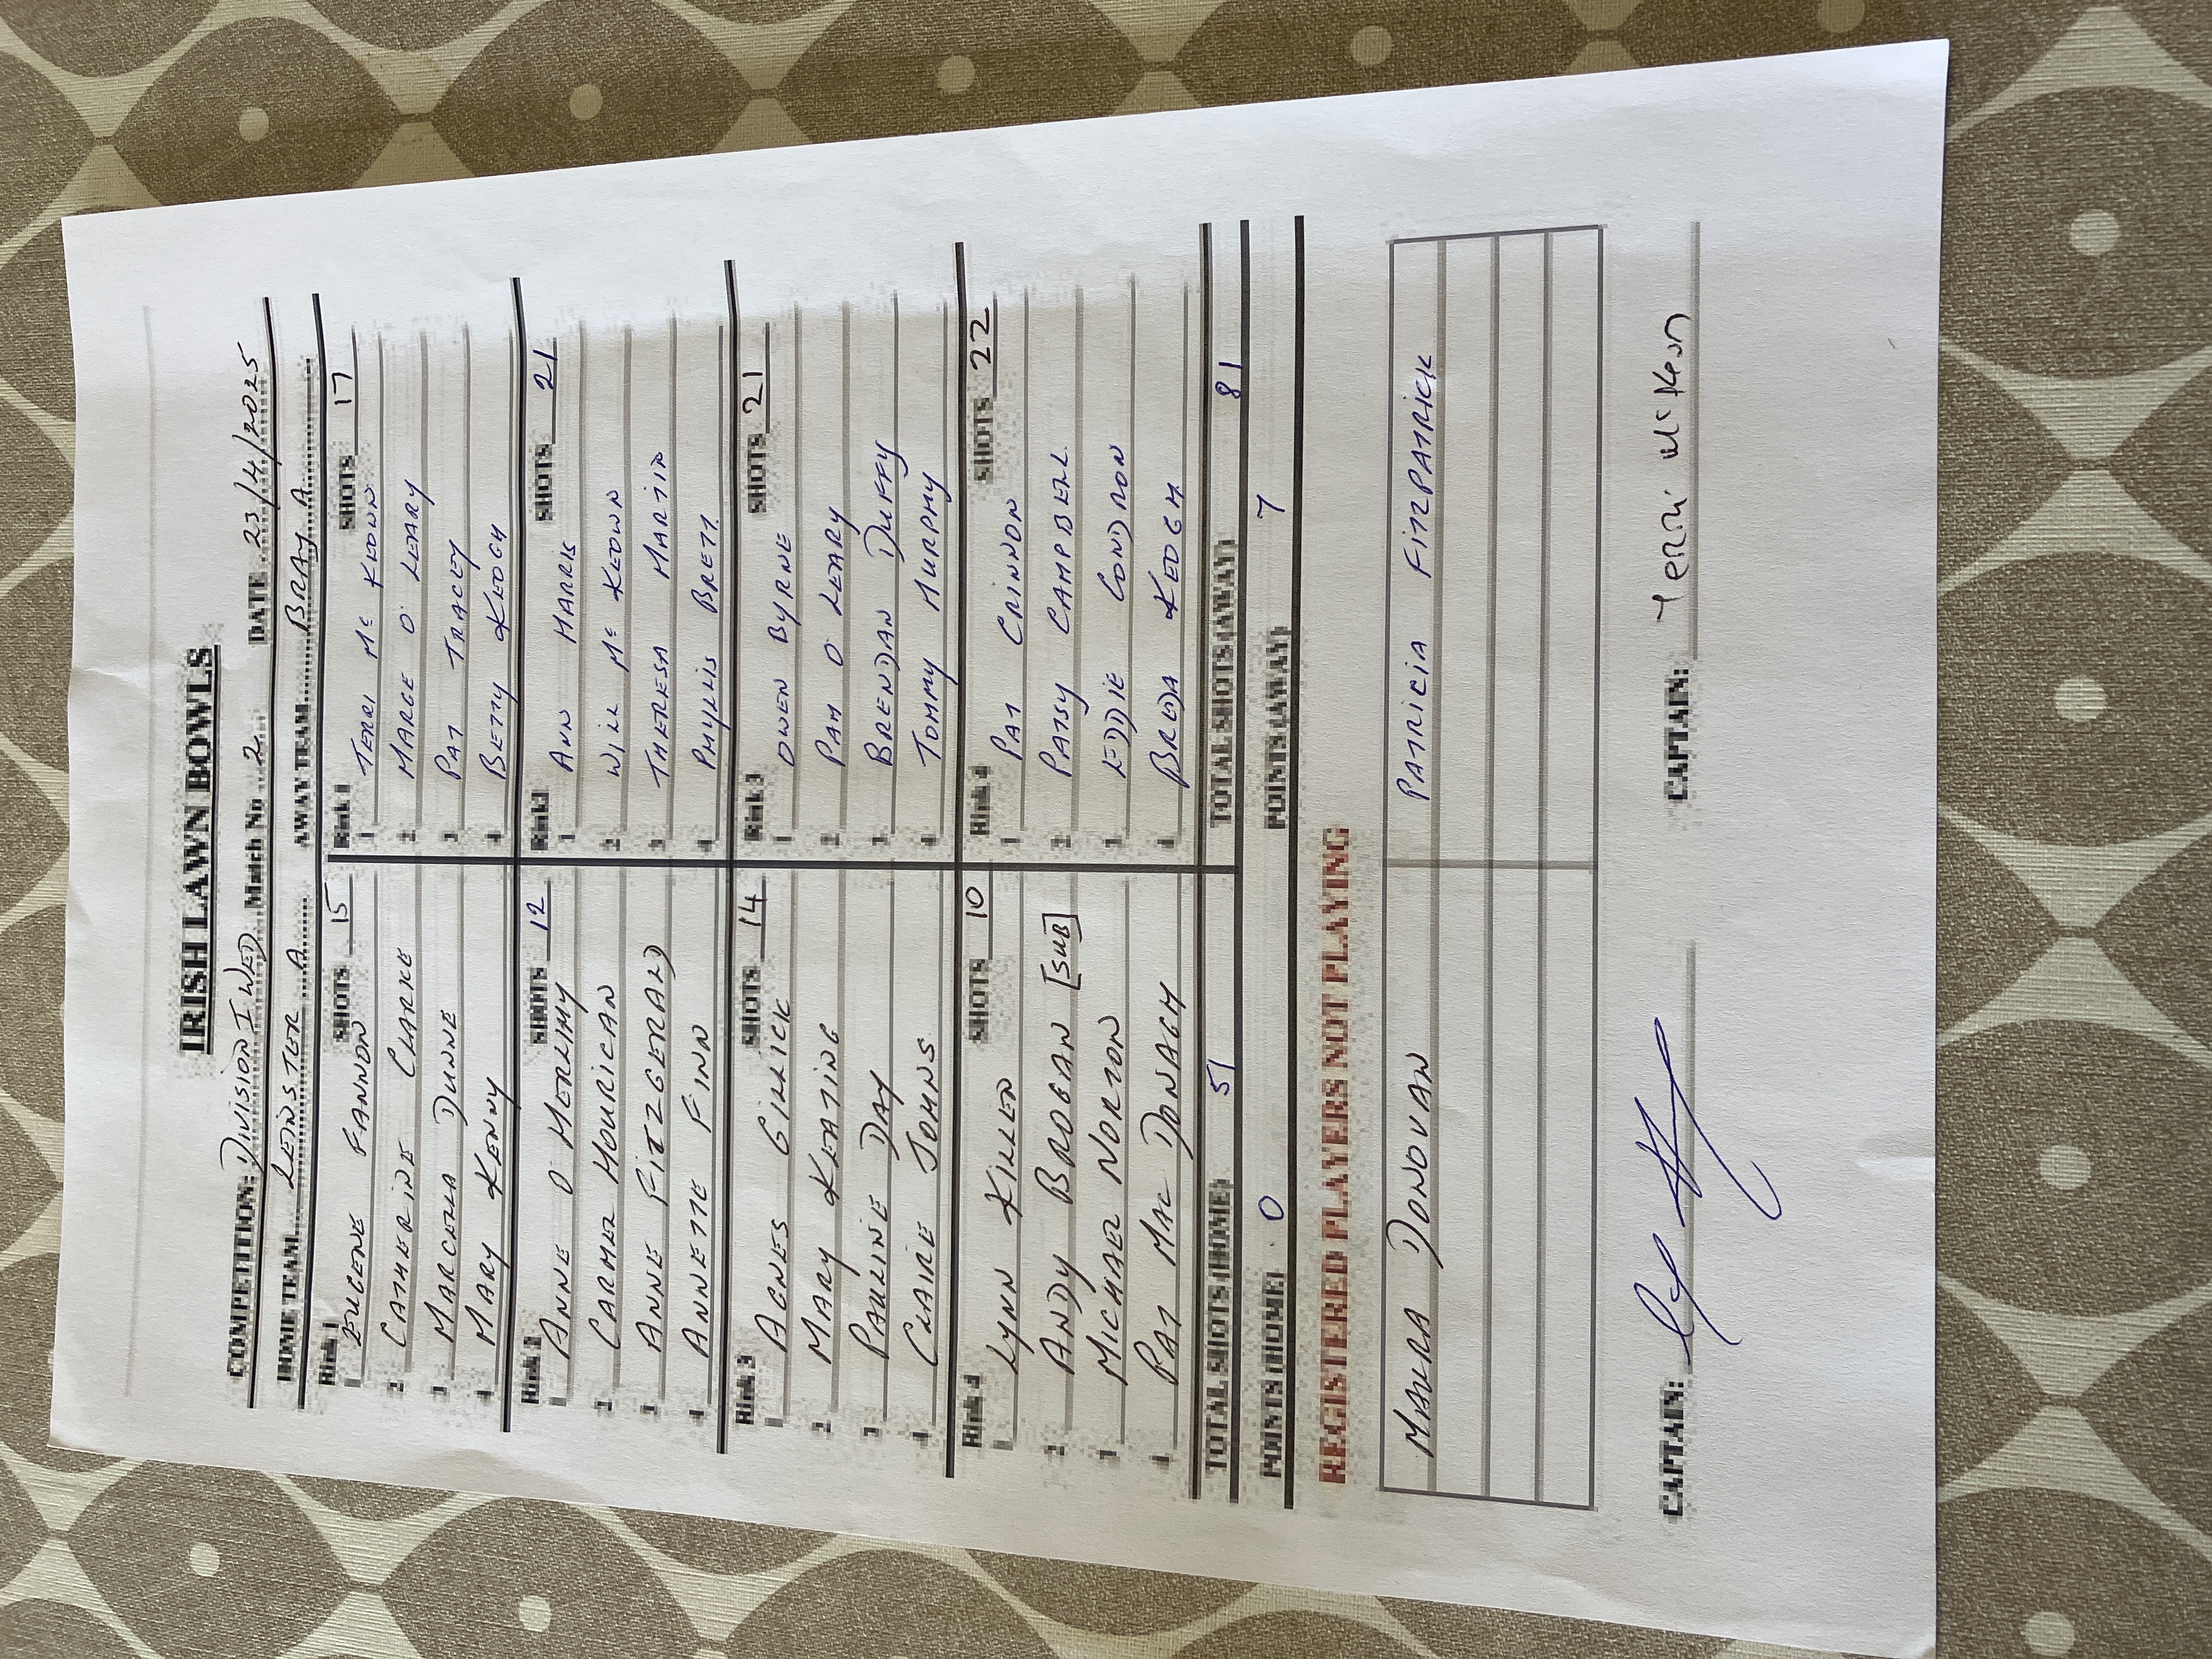 IRISH LAWN BOWLS
COMPETITION: DIVISION I WED Match No 2. DATE 23/4/2025
HOME TEAM LEINSTER A AWAY TEAM BRAY A
Rink 1 SHOTS 15 Rink 1 SHOTS 17
1 EUGENE FANNON 1 TERRI Mc KEOWN
2 CATHERINE CLARKE 2 MARGE O LEARY
3 MARCELLA DUNNE 3 PAT TRACEY
4 MARY KENNY 4 BETTY KEOGH
Rink 2 SHOTS 12 Rink2 SHOTS 21
1 ANNE O HERLIHY 1 ANN HARRIS
2 CARMEL HOURICAN 2 WILL Mc KEOWN
3 ANNE FITZGERALD 3 THERESA MARTIN
4 ANNETTE FINN 4 PHYLLIS BRETT.
Rink 3 SHOTS 14 Rink 3 SHOTS 21
1 AGNES GILLICK 1 OWEN BYRNE
2 MARY KEATING 2 PAM O LEARY
3 PAULINE DAY 3 BRENDAN DUFFY
4 CLAIRE JOHNS 4 TOMMY MURPHY
Rink 4 SHOTS 10 Rink 4 SHOTS 22
1 LYNN KILLEN 1 PAT CRINNON
2 ANDY BROGAN [SUB] 2 PATSY CAMPBELL
3 MICHAEL NORTON 3 EDDIE CONDRON
4 PAT MAC DONAGH 4 BREDA KEOGH
TOTAL SHOTS (HOME) 51 TOTAL SHOTS (AWAY) 81
POINTS (HOME) 0 POINTS (AWAY) 7
REGISTERED PLAYERS NOT PLAYING
MAURA DONOVAN PATRICIA FITZPATRICK
CAPTAIN: CAPTAIN: Terri McKeon